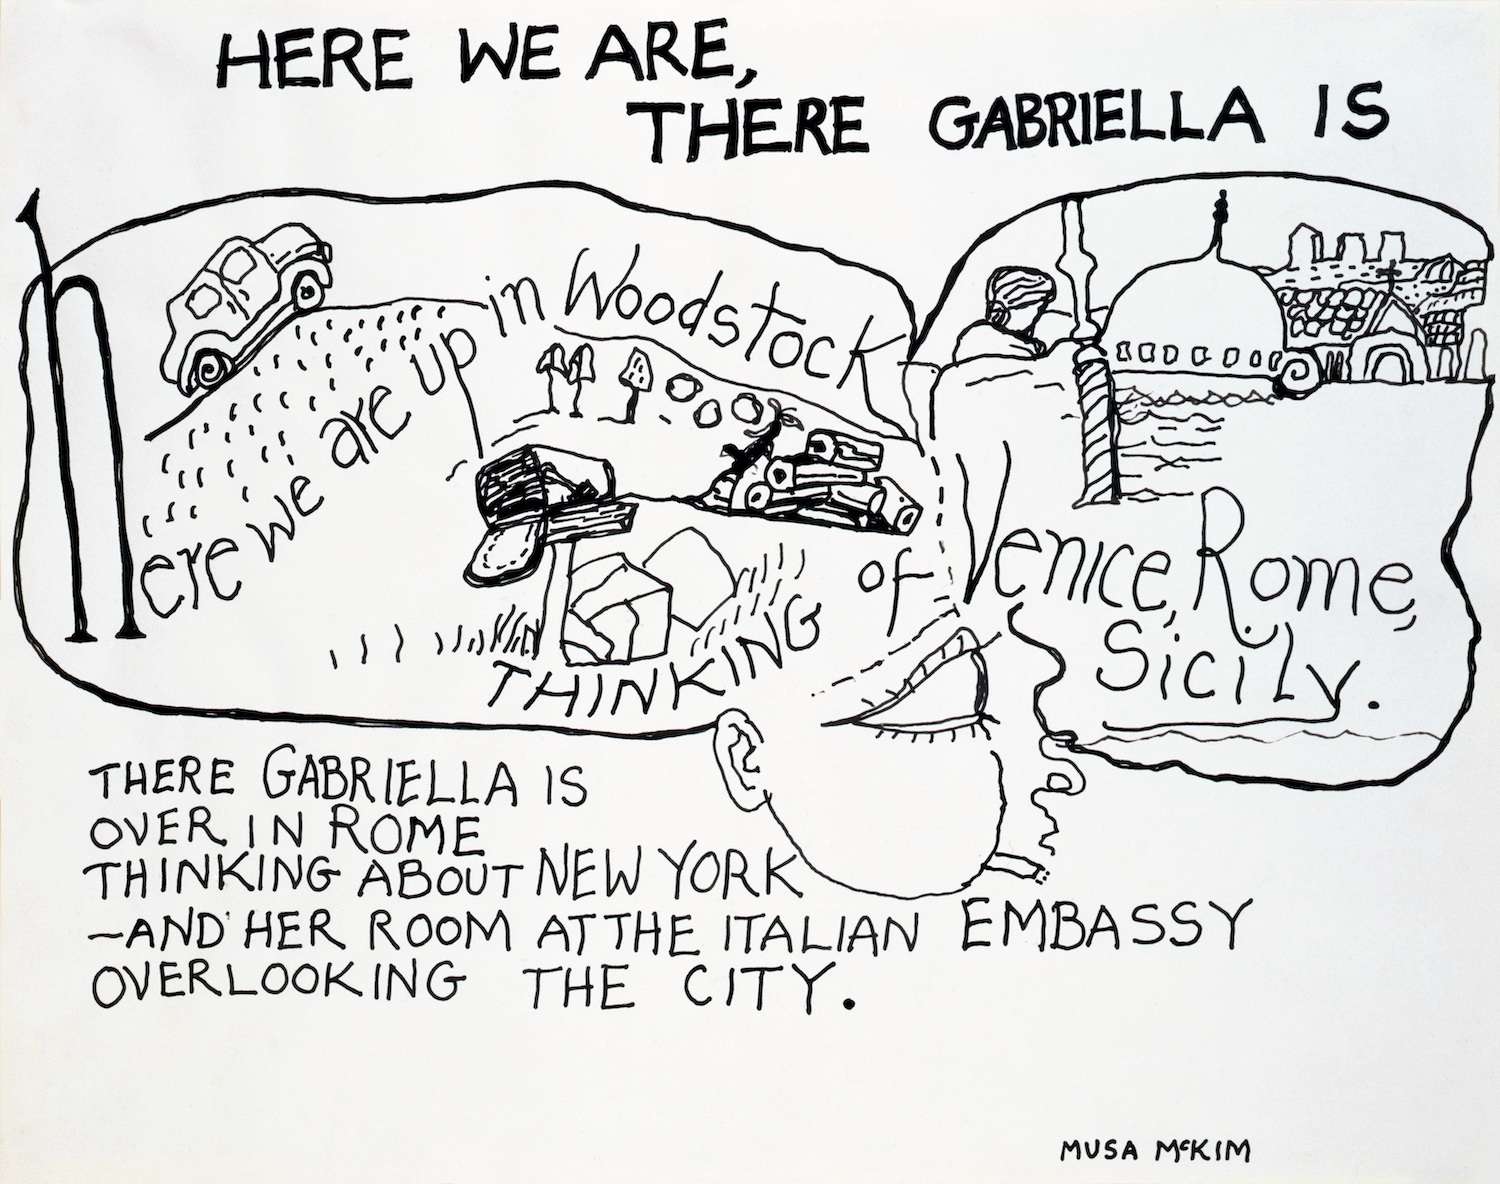 HERE WE ARE,
THERE GABRIELLA IS
here we are up in Woodstock
THINKING of Venice, Rome,
Sicily.
THERE GABRIELLA IS
OVER IN ROME
THINKING ABOUT NEW YORK
—AND HER ROOM AT THE ITALIAN EMBASSY
OVERLOOKING THE CITY.
MUSA McKIM